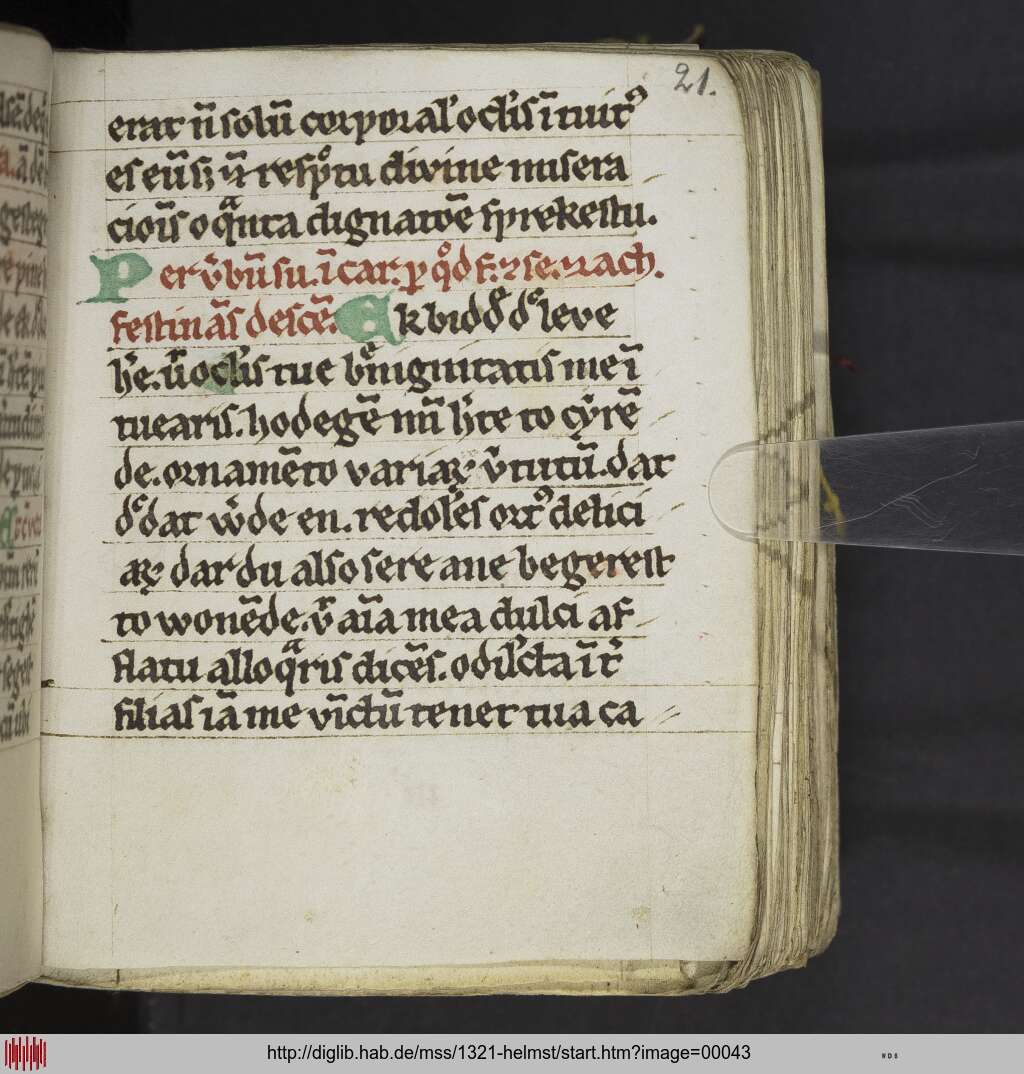 21.
erat n̄ solū corporal' oclīs ītuit᾽
es eūȝ ⁊ respͦtu divine misera
cioīs o qᷓnta dignatōe sprekestu.
Per v̄bū su. ī car. p qͦd f. ⁊ se. ⁊ ach.
festināsdescē. Ek biddᵉ dͦ leve
h'e. ūoclīs tue bͤnignitatis me ī
tuearis. hodegē mī h'te to cẏrē
de. ornamēto variaꝝ v̄tutū. dat
dͨ dat w̄de en. redolēs ort᾽ delici
aꝝ dar du also sere ane begerest
to wonēde. v̄ aīa mea dulci af
flatu alloqᷓris dicēs. o dil'cta īt'
filias iā me vīctū tenet tua ca
http://diglib.hab.de/mss/1321-helmst/start.htm?image=00043